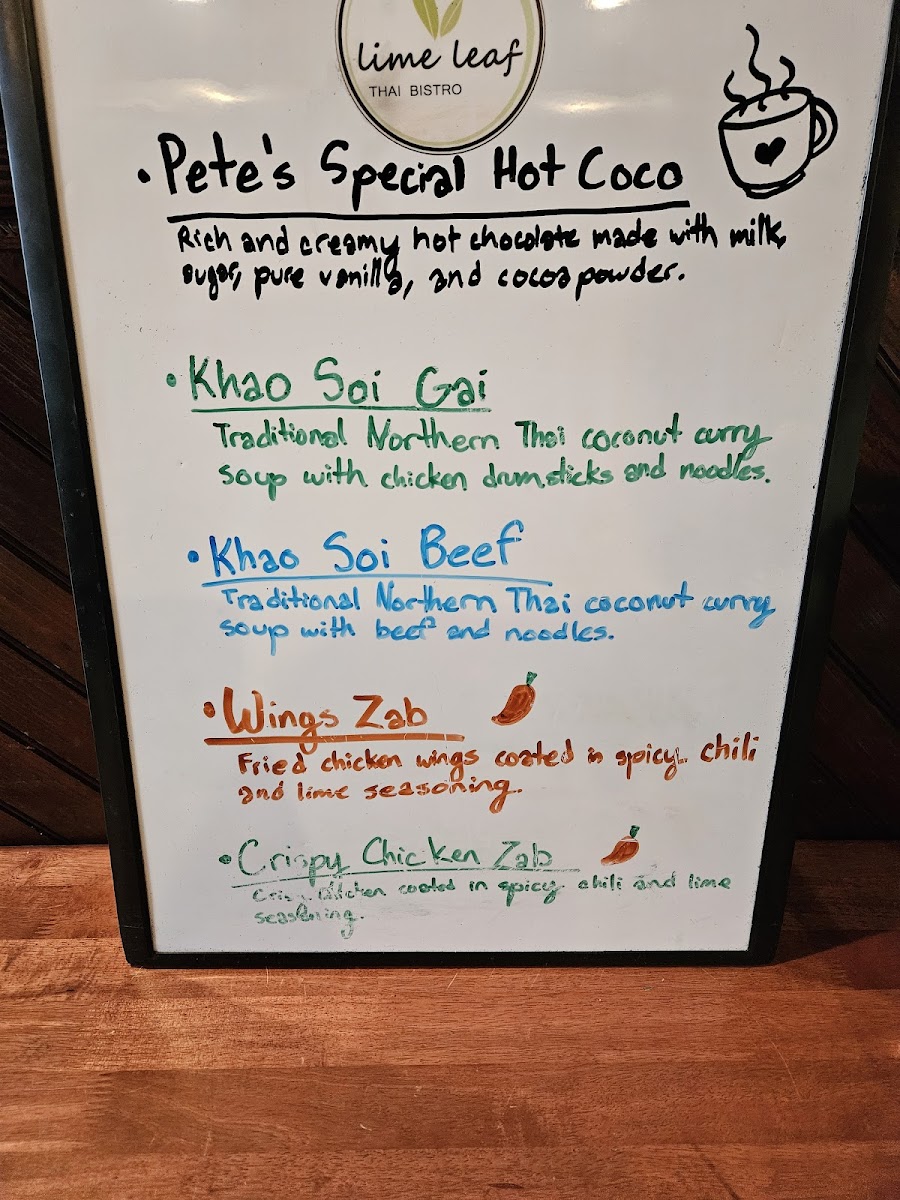 lime leaf
THAI BISTRO
• Pete's Special Hot Coco
Rich and creamy hot chocolate made with milk,
sugar, pure vanilla, and cocoa powder.
• Khao Soi Gai
Traditional Northern Thai coconut curry
soup with chicken drumsticks and noodles.
• Khao Soi Beef
Traditional Northern Thai coconut curry
soup with beef and noodles.
• Wings Zab
Fried chicken wings coated in spicy chili
and lime seasoning.
• Crispy Chicken Zab
chicken coated in spicy chili and lime
seasoning.